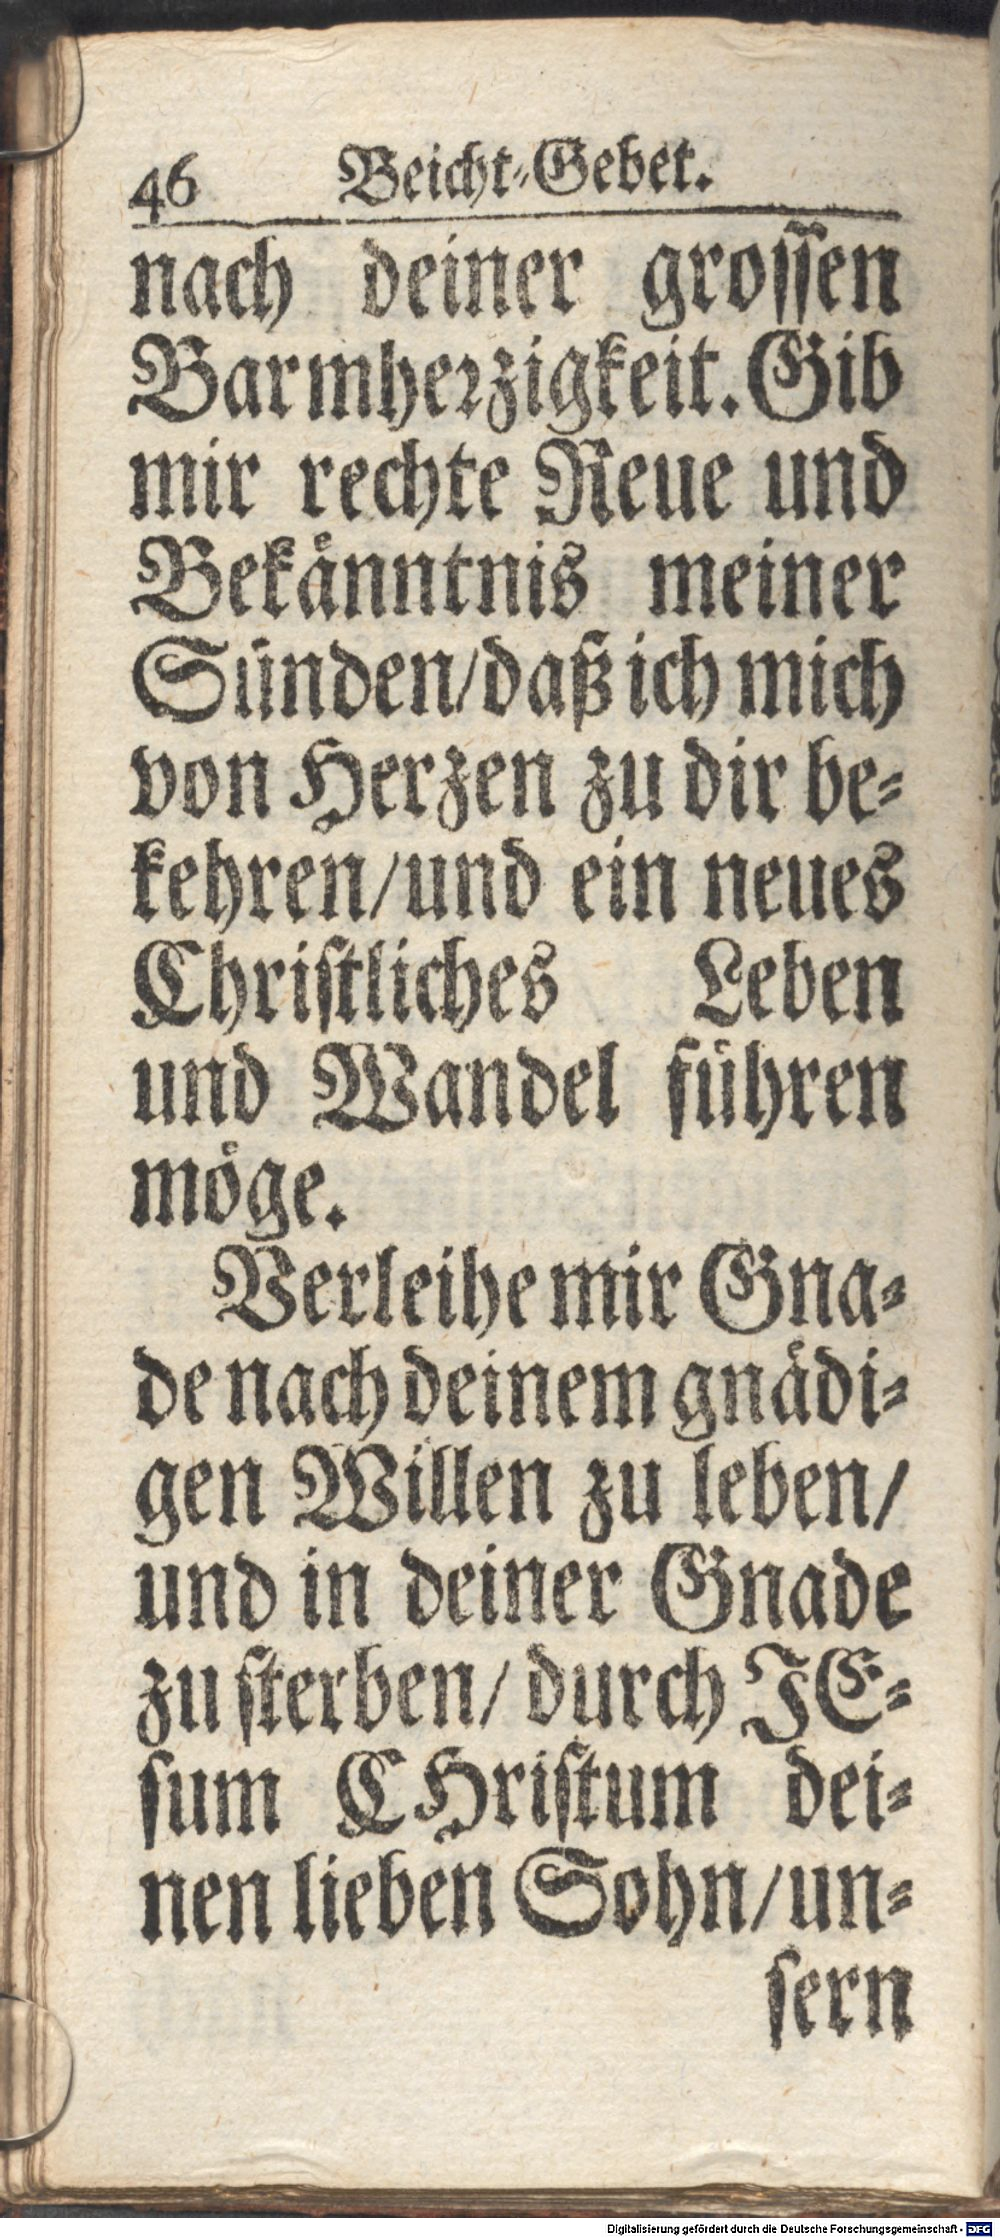 46 Beicht-Gebet.
nach deiner groſſen
Barmheꝛzigkeit. Gib
mir rechte Reue und
Bekaͤnntnis meiner
Suͤnden/ daß ich mich
von Herzen zu dir be-
kehren/ und ein neues
Chriſtliches Leben
und Wandel fuͤhren
moͤge.
Verleihe mir Gna-
de nach deinem gnaͤdi-
gen Willen zu leben/
und in deiner Gnade
zu ſterben/ durch JE-
ſum CHriſtum dei-
nen lieben Sohn/ un-
ſern
Digitalisierung gefördert durch die Deutsche Forschungsgemeinschaft - DFG